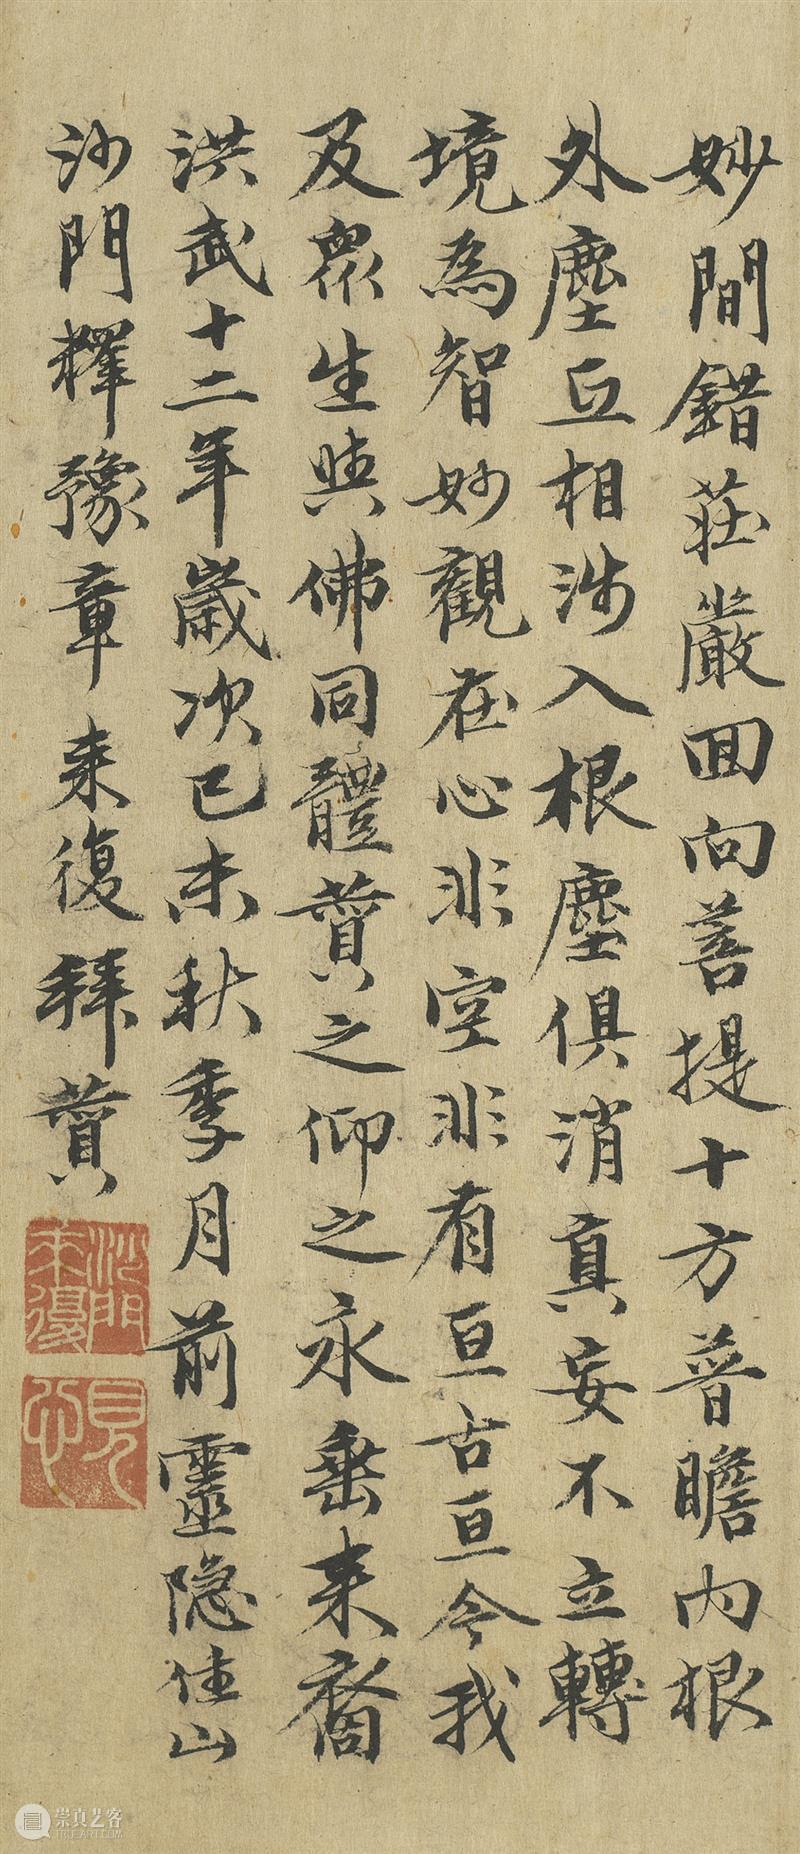 妙間錯莊嚴回向菩提十方普瞻内根
外塵互相涉入根塵俱消真妄不立轉
境為智妙觀在心非空非有亘古亘今我
及衆生與佛同體賛之仰之永垂来裔
洪武十二年歲次己未秋季月前靈隐住山
沙門釋豫章来復拜賛
沙門来復
見心
崇真艺客
TRUEART.COM